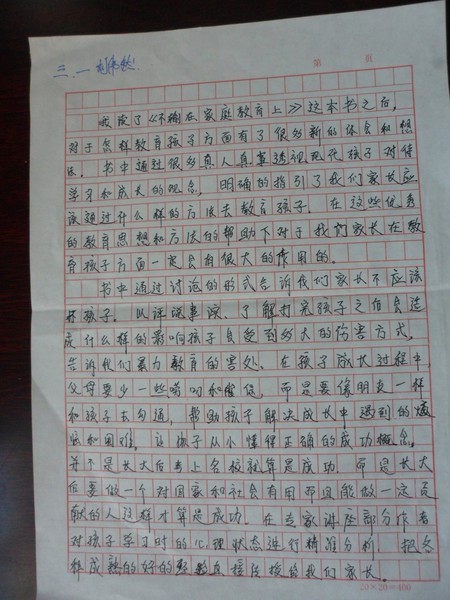 三.一
第 页
我读了《不输在家庭教育上》这本书之后,
对于怎样教育孩子方面有了很多新的体会和想
法。书中通过很多真人真事透视现代孩子对待
学习和成长的观念,明确的指引了我们家长应
该通过什么样的方法去教育孩子。在这些优秀
的教育思想和方法的帮助下对于我们家长在教
育孩子方面一定会有很大的作用的。
书中通过讨论的形式告诉我们家长不应该
打孩子。以评说事误、了解打完孩子之后会造
成什么样的影响孩子会受到多大的伤害方式,
告诉我们暴力教育的害处。在孩子成长过程中,
父母要少一些唠叨和 ,而是要像朋友一样
和孩子去勾通,帮助孩子解决成长中遇到的烦
恼和困难。让孩子从小懂得正确的成功概念,
并不是长大后考上名校就算是成功,而是长大
后要做一个对国家和社会有用而且能做一定贡
献的人这样才算是成功。在专家讲座部分作者
对孩子学习时的心理状态进行精准分析,把
样成熟的好的经验直接传授给我们家长。
20×20=400